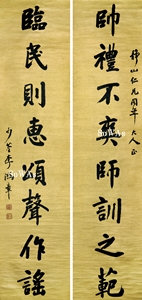 山仁兄同年大人正
帥禮不爽師訓之範
臨民則惠頌聲作謠
少荃李鴻章